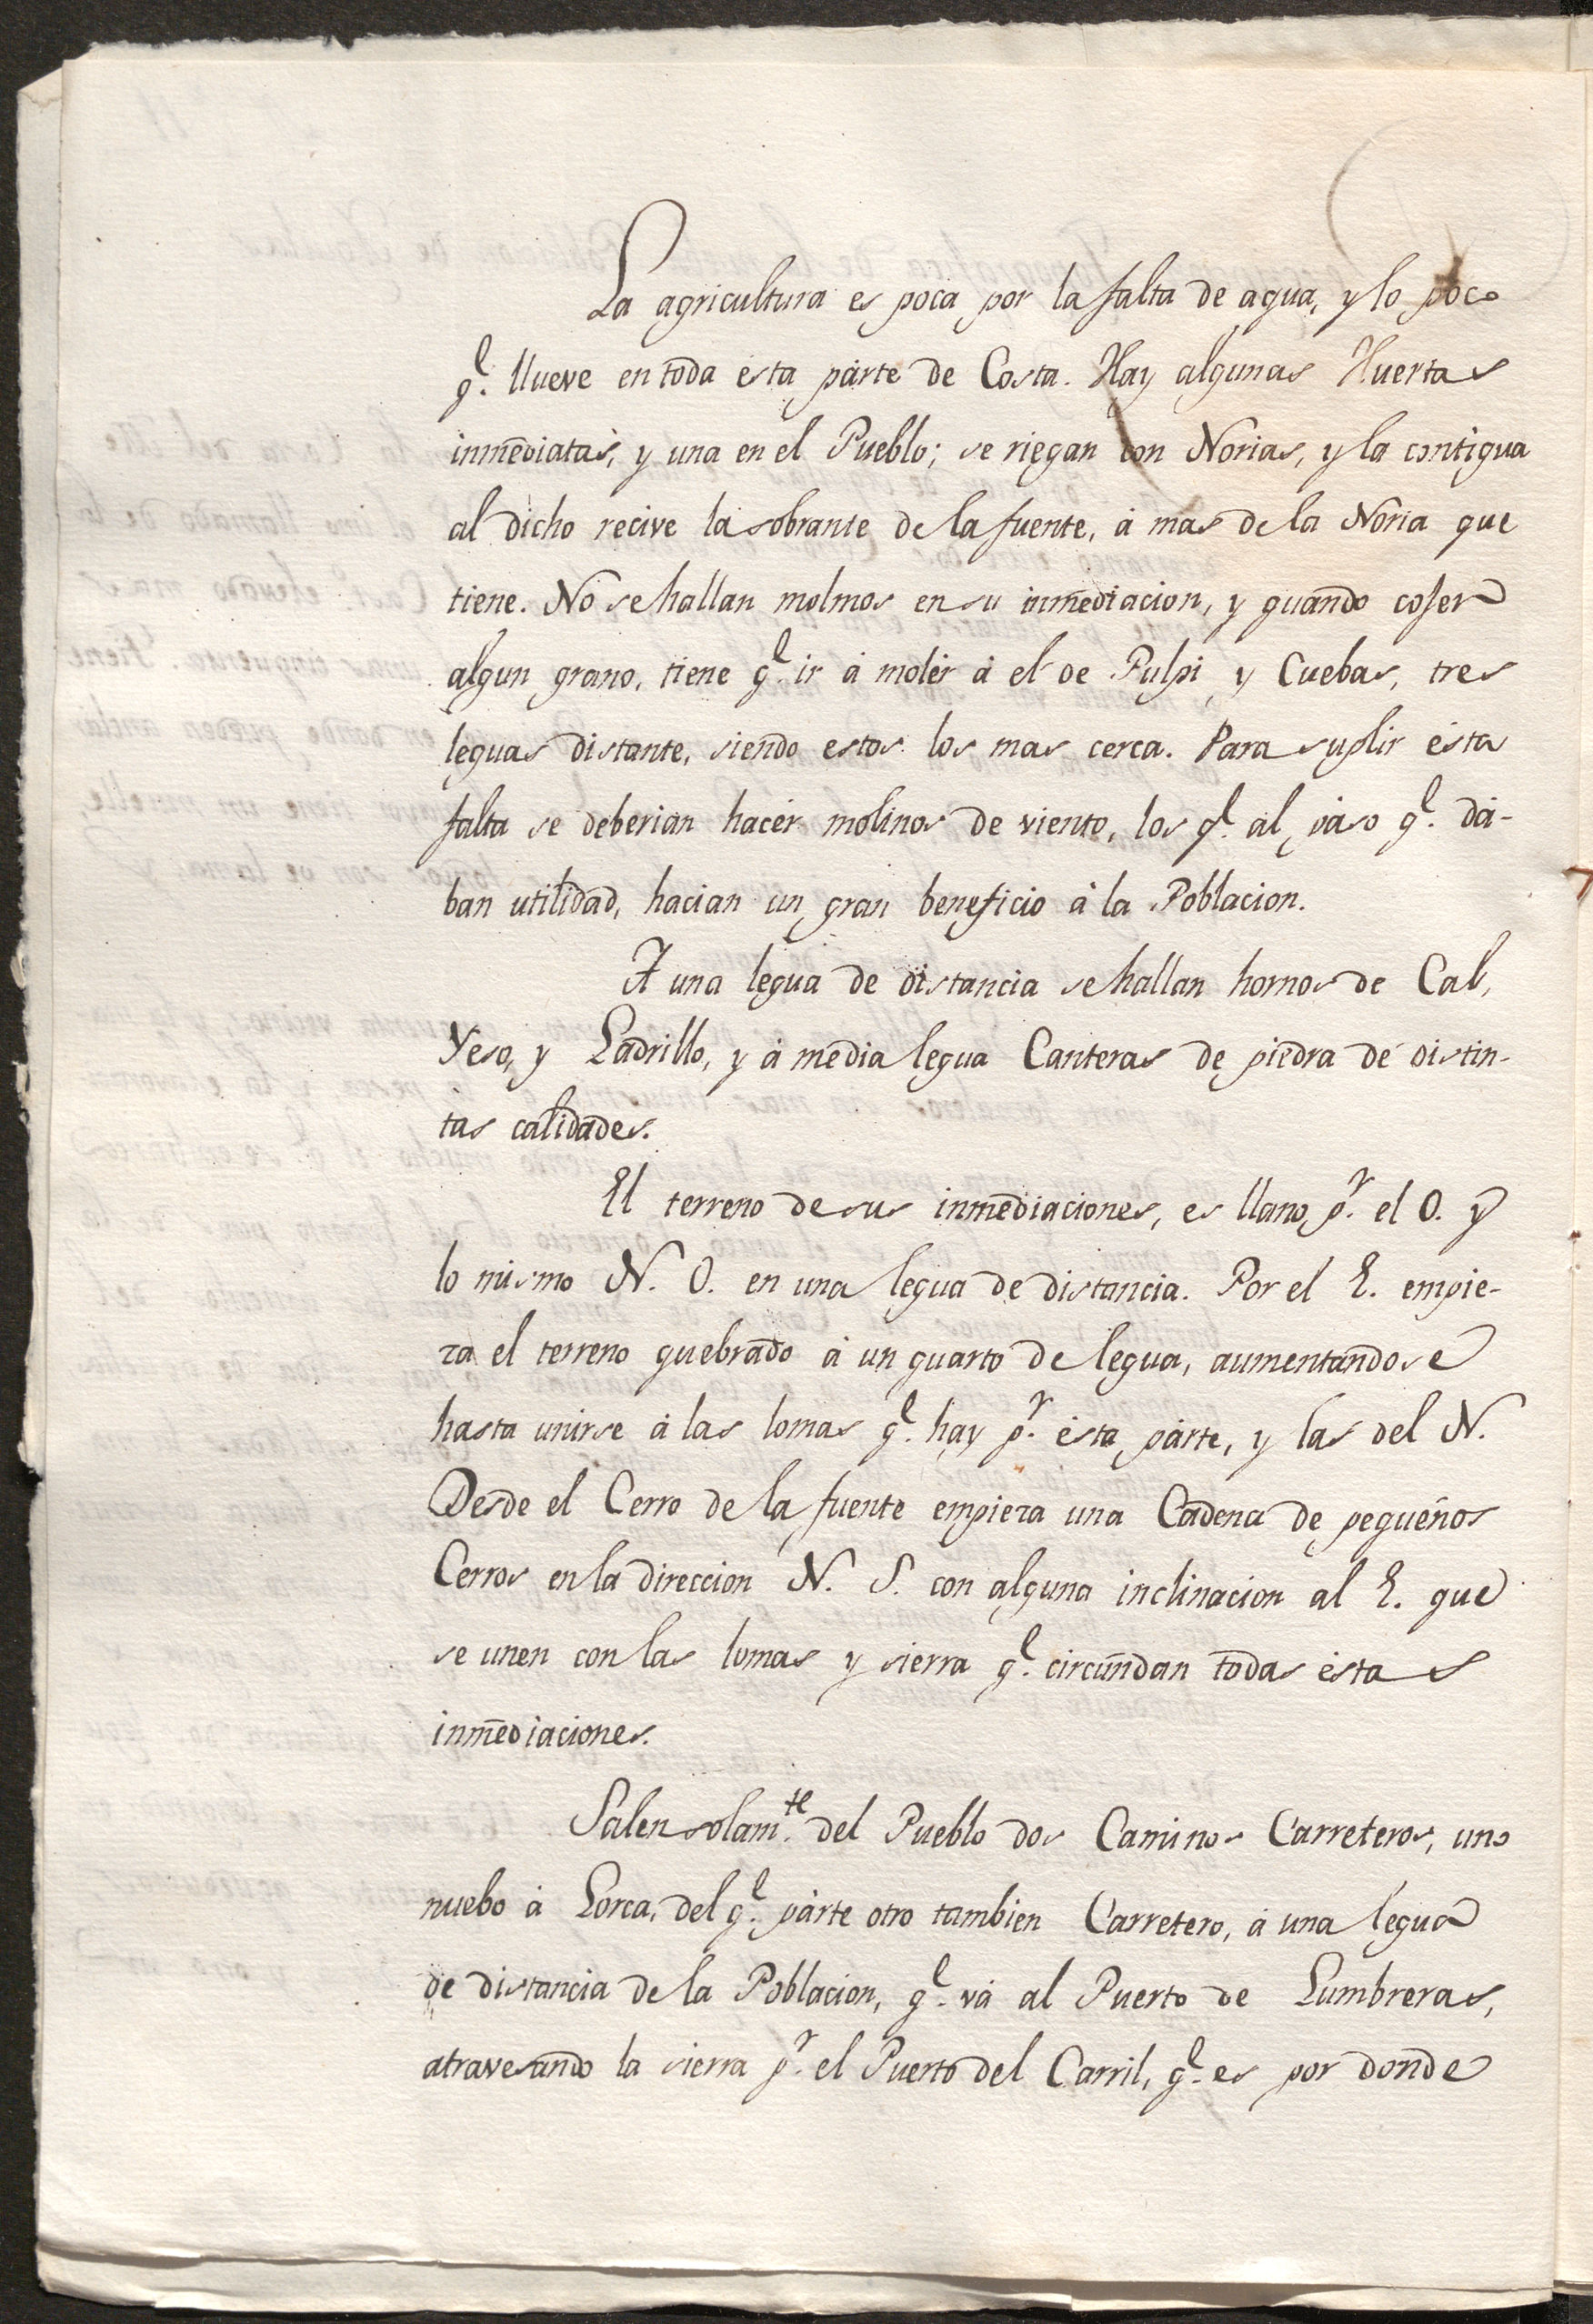 La agricultura es poca por la falta de agua, y lo poco
q.^e llueve en toda esta parte de Costa. Hay algunas Huertas
inmediatas, y una en el Pueblo; se riegan con Norias, y la contigua
al dicho recive la sobrante de la fuente, à mas de la Noria que
tiene. No se hallan molinos en su inmediacion, y quando cojen
algun grano, tiene q.^e ir à moler à el de Pulpi y Cuebas, tres
leguas distante, siendo estos los mas cerca. Para suplir esta
falta se deberian hacer molinos de viento, los q.^e al paso q.^e dà-
ban utilidad, hacian un gran beneficio à la Poblacion.
A una legua de distancia se hallan hornos de Cal,
Yeso, y Ladrillo, y à media legua Canteras de piedra de distin-
tas calidades.
El terreno de sus inmediaciones, es llano p.^r el O. y
lo mismo N. O. en una legua de distancia. Por el E. empie-
za el terreno quebrado à un quarto de legua, aumentandose
hasta unirse à las lomas q.^e hay p.^r esta parte, y las del N.
Desde el Cerro de la fuente empieza una Cadena de pequeños
Cerros en la direccion N. S. con alguna inclinacion al E. que
se unen con las lomas y sierra q.^e circundan todas estas
inmediaciones.
Salen solam.^te del Pueblo dos Caminos Carreteros, uno
nuebo à Lorca, del q.^e parte otro tambien Carretero, à una legua
de distancia de la Poblacion, q.^e và al Puerto de Lumbreras,
atravesando la sierra p.^r el Puerto del Carril, q.^e es por donde